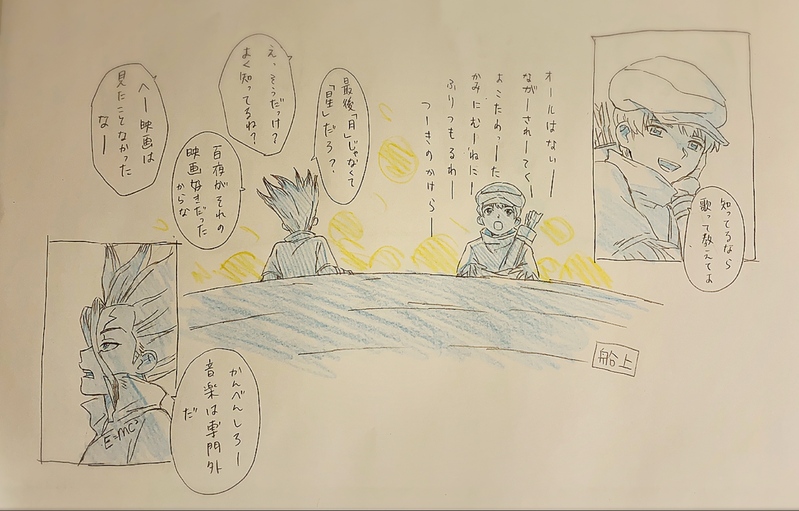 オールはないー
ながーされーてくー
よこたわっーた
かみにむーねにー
ふりつもるわー
つーきのかけらー
最後「月」じゃなくて
「星」だろ？
え、そうだっけ？
よく知ってるね？
百夜がそれの
映画好きだった
からな
へー映画は
見たことなかった
なー
知ってるなら
歌って教えてよ
かんべんしろー
音楽は専門外
だ
E=mc²
船上